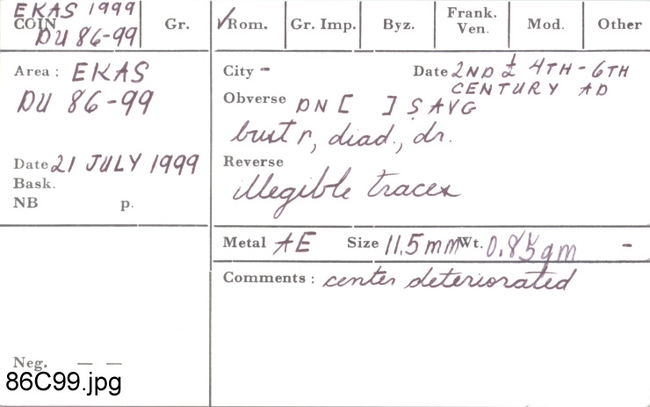 EKAS 1999
COIN DU 86-99 Gr. ✓Rom. Gr. Imp. Byz. Frank. Ven. Mod. Other
Area : EKAS
DU 86-99
Date 21 JULY 1999
Bask.
NB p.
City - Date 2ND ½ 4TH - 6TH
CENTURY AD
Obverse DN [ ] S AVG
bust r, diad., dr.
Reverse
illegible traces
Metal AE Size 11.5mm Wt. 0.85gm -
Comments : center deteriorated
Neg. — —
86C99.jpg